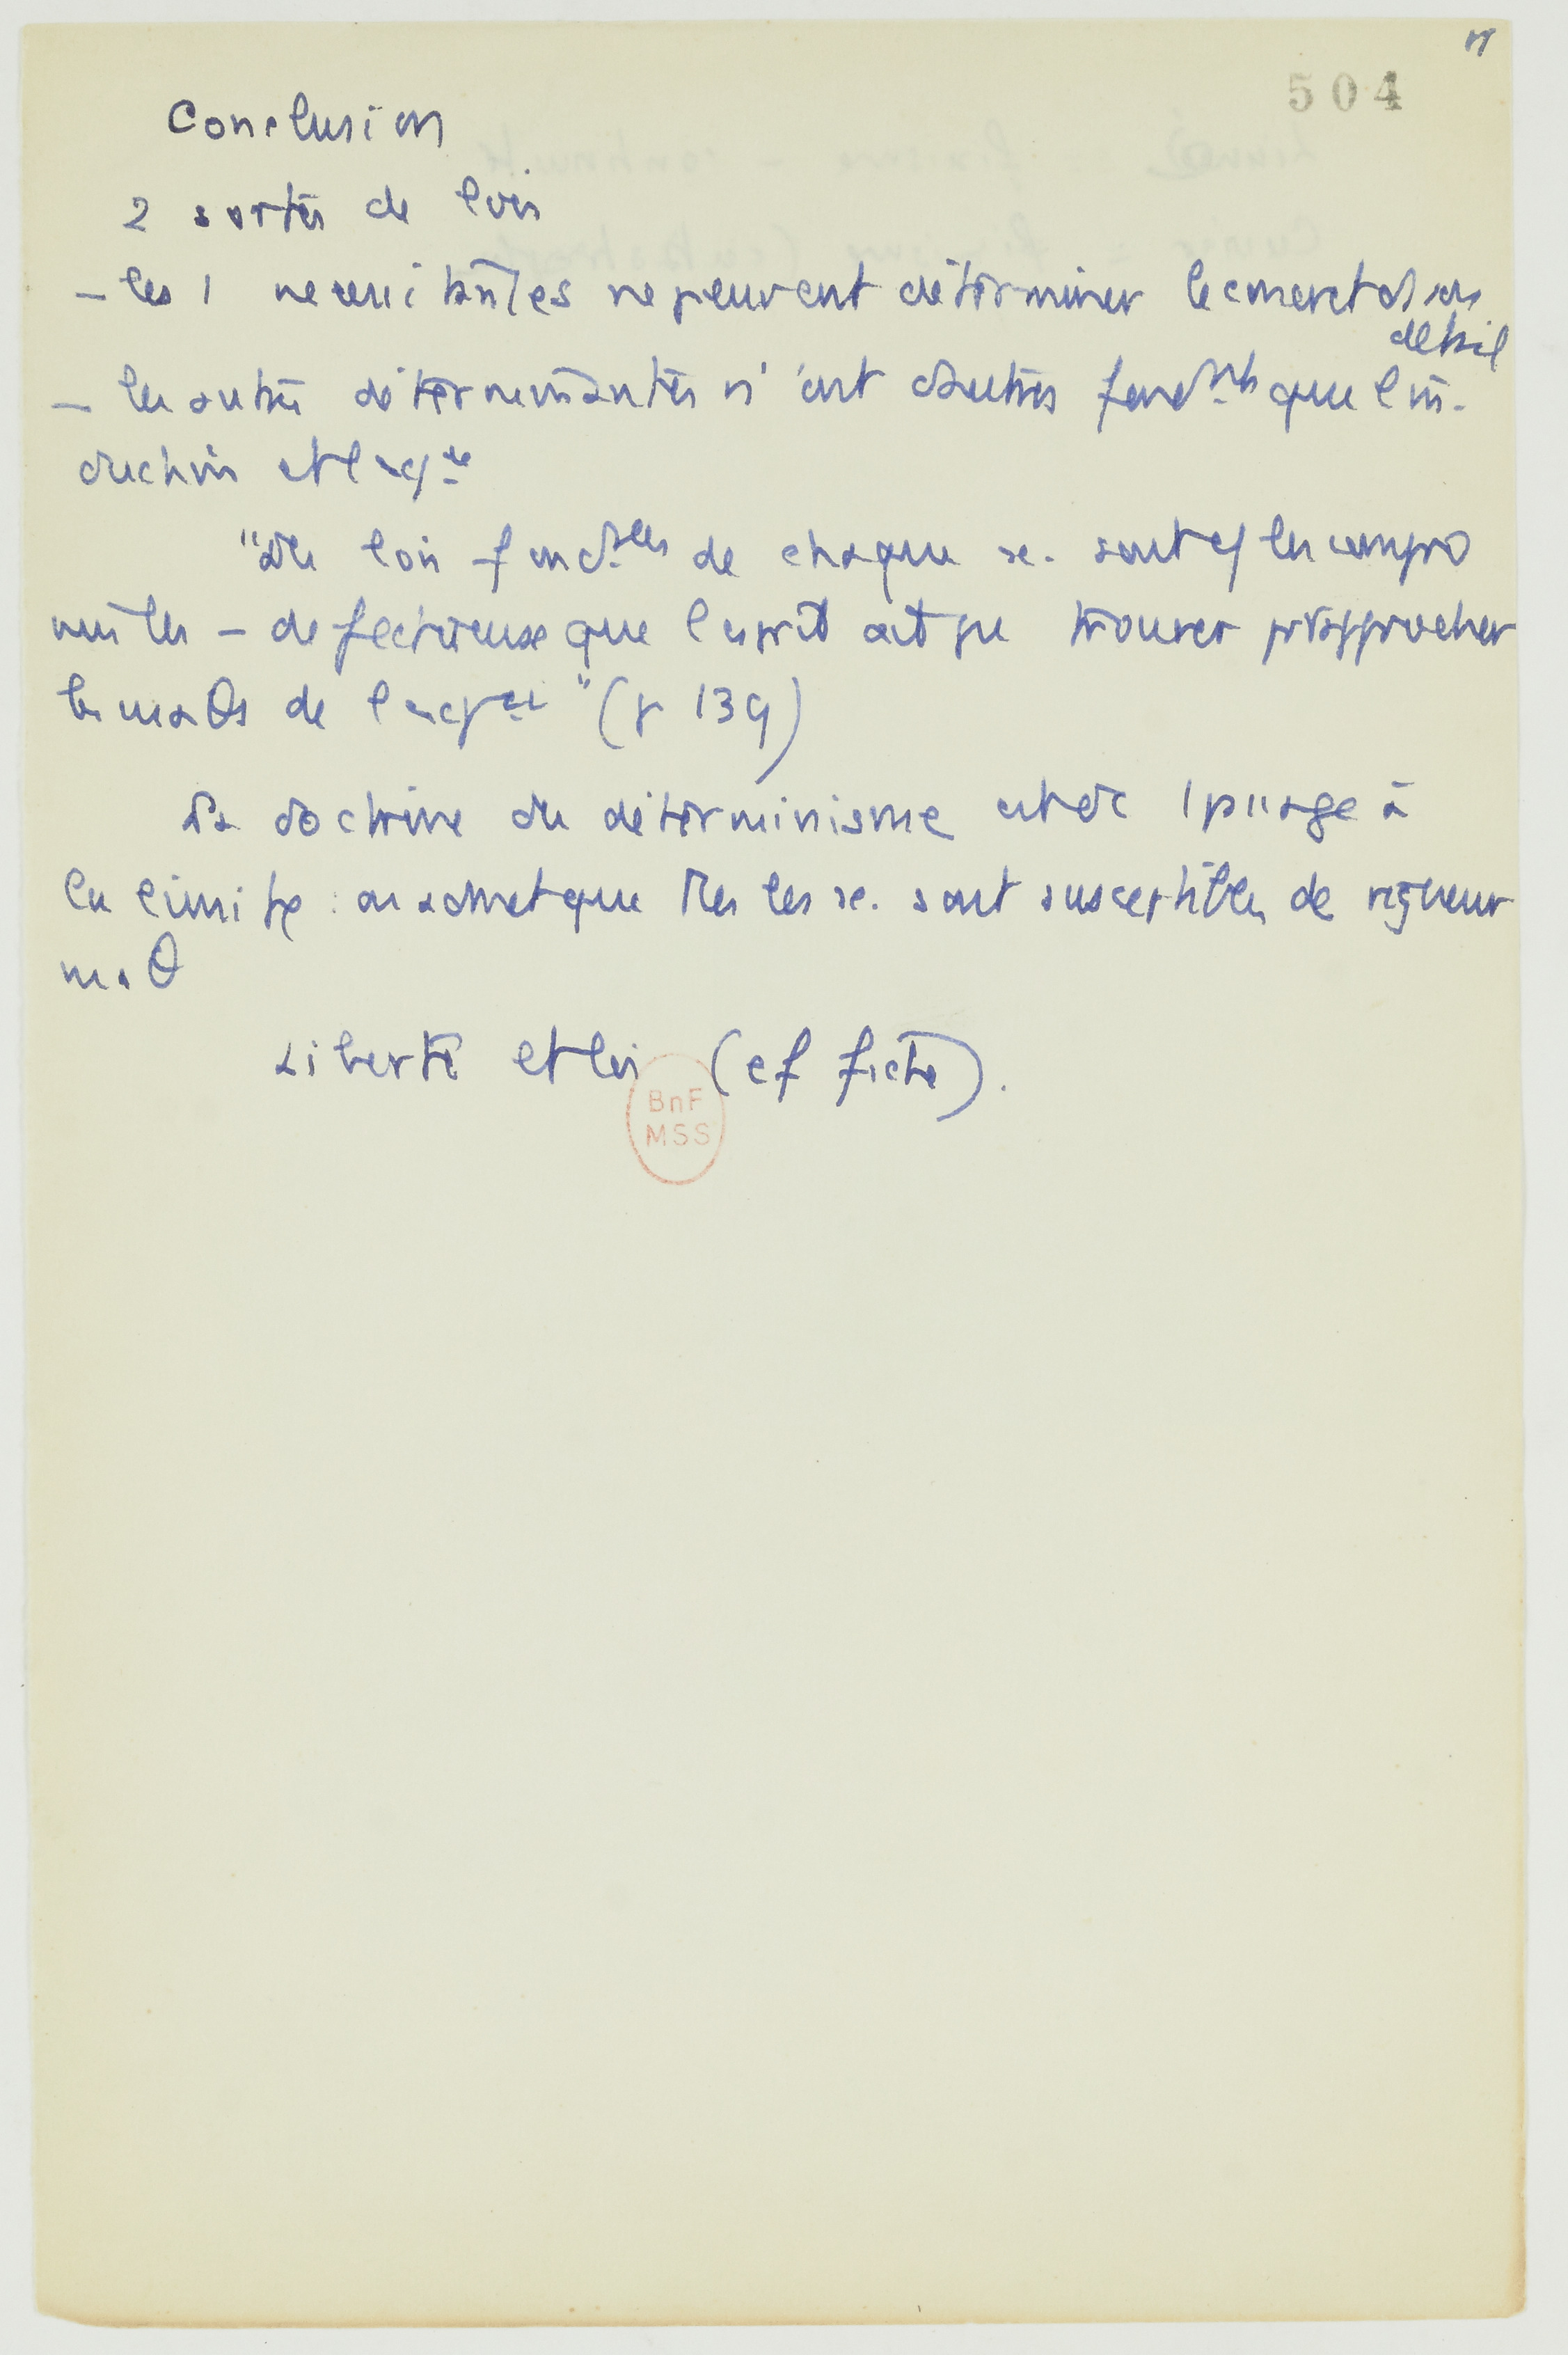 504
Conclusion
2 sortes de lois
– les 1 necessitantes ne peuvent déterminer le concret ds son
détail
– les autres déterminantes n'ont d'autres fond.nts que l'in-
duction et l'
"Les lois fond.lles de chaque sc. sont les compro
mis les – defectueux que l'esprit ait pu trouver pr rapprocher
les maθs de l' " (p 139)
La doctrine du déterminisme est dc 1 passage à
la limite : on admet que ttes les sc. sont susceptibles de rigueur
maθ
Liberté et loi (cf fiche).
BnF
MSS